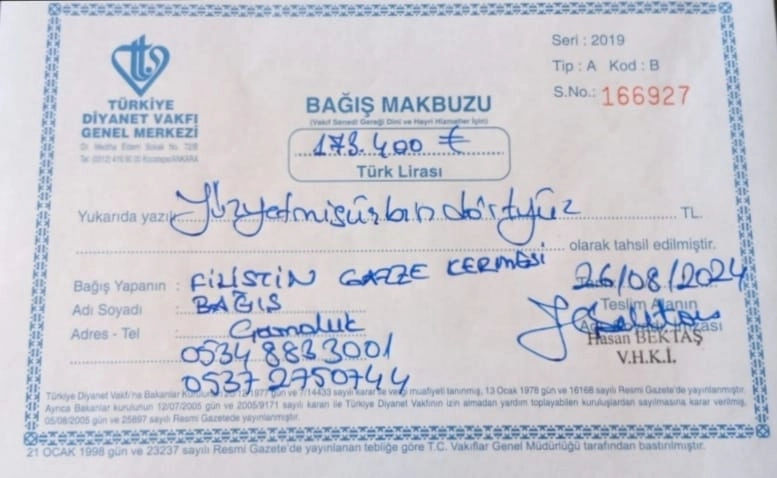 Seri : 2019
Tip : A Kod : B
S.No.: 166927
TÜRKİYE
DİYANET VAKFI
GENEL MERKEZİ
Dr. Mediha Eldem Sokak No. 72/B
Tel: (0312) 416 90 00 Kocatepe/ANKARA
BAĞIŞ MAKBUZU
(Vakıf Senedi Gereği Dini ve Hayri Hizmetler İçin)
173.400 €
Türk Lirası
Yukarıda yazılı Yüzyetmişüçbin dörtyüz TL.
olarak tahsil edilmiştir.
Bağış Yapanın : FİLİSTİN GAZZE KERMESİ
26/08/2024
Adı Soyadı : BAĞIŞ
Teslim Alanın
Adres - Tel : Gamaluk
İmzası
0534 8833001
Hasan BEKTAŞ
V.H.K.İ.
0537 2750744
Türkiye Diyanet Vakfı'na Bakanlar Kurulunun 20/12/1977 gün ve 7/14433 sayılı kararı ile vergi muafiyeti tanınmış, 13 Ocak 1978 gün ve 16168 sayılı Resmi Gazete'de yayınlanmıştır.
Ayrıca Bakanlar kurulunun 12/07/2005 gün ve 2005/9171 sayılı kararı ile Türkiye Diyanet Vakfının izin almadan yardım toplayabilen kuruluşlardan sayılmasına karar verilmiş,
05/08/2005 gün ve 25897 sayılı Resmi Gazetede yayınlanmıştır.
21 OCAK 1998 gün ve 23237 sayılı Resmi Gazete'de yayınlanan tebliğe göre T.C. Vakıflar Genel Müdürlüğü tarafından bastırılmıştır.